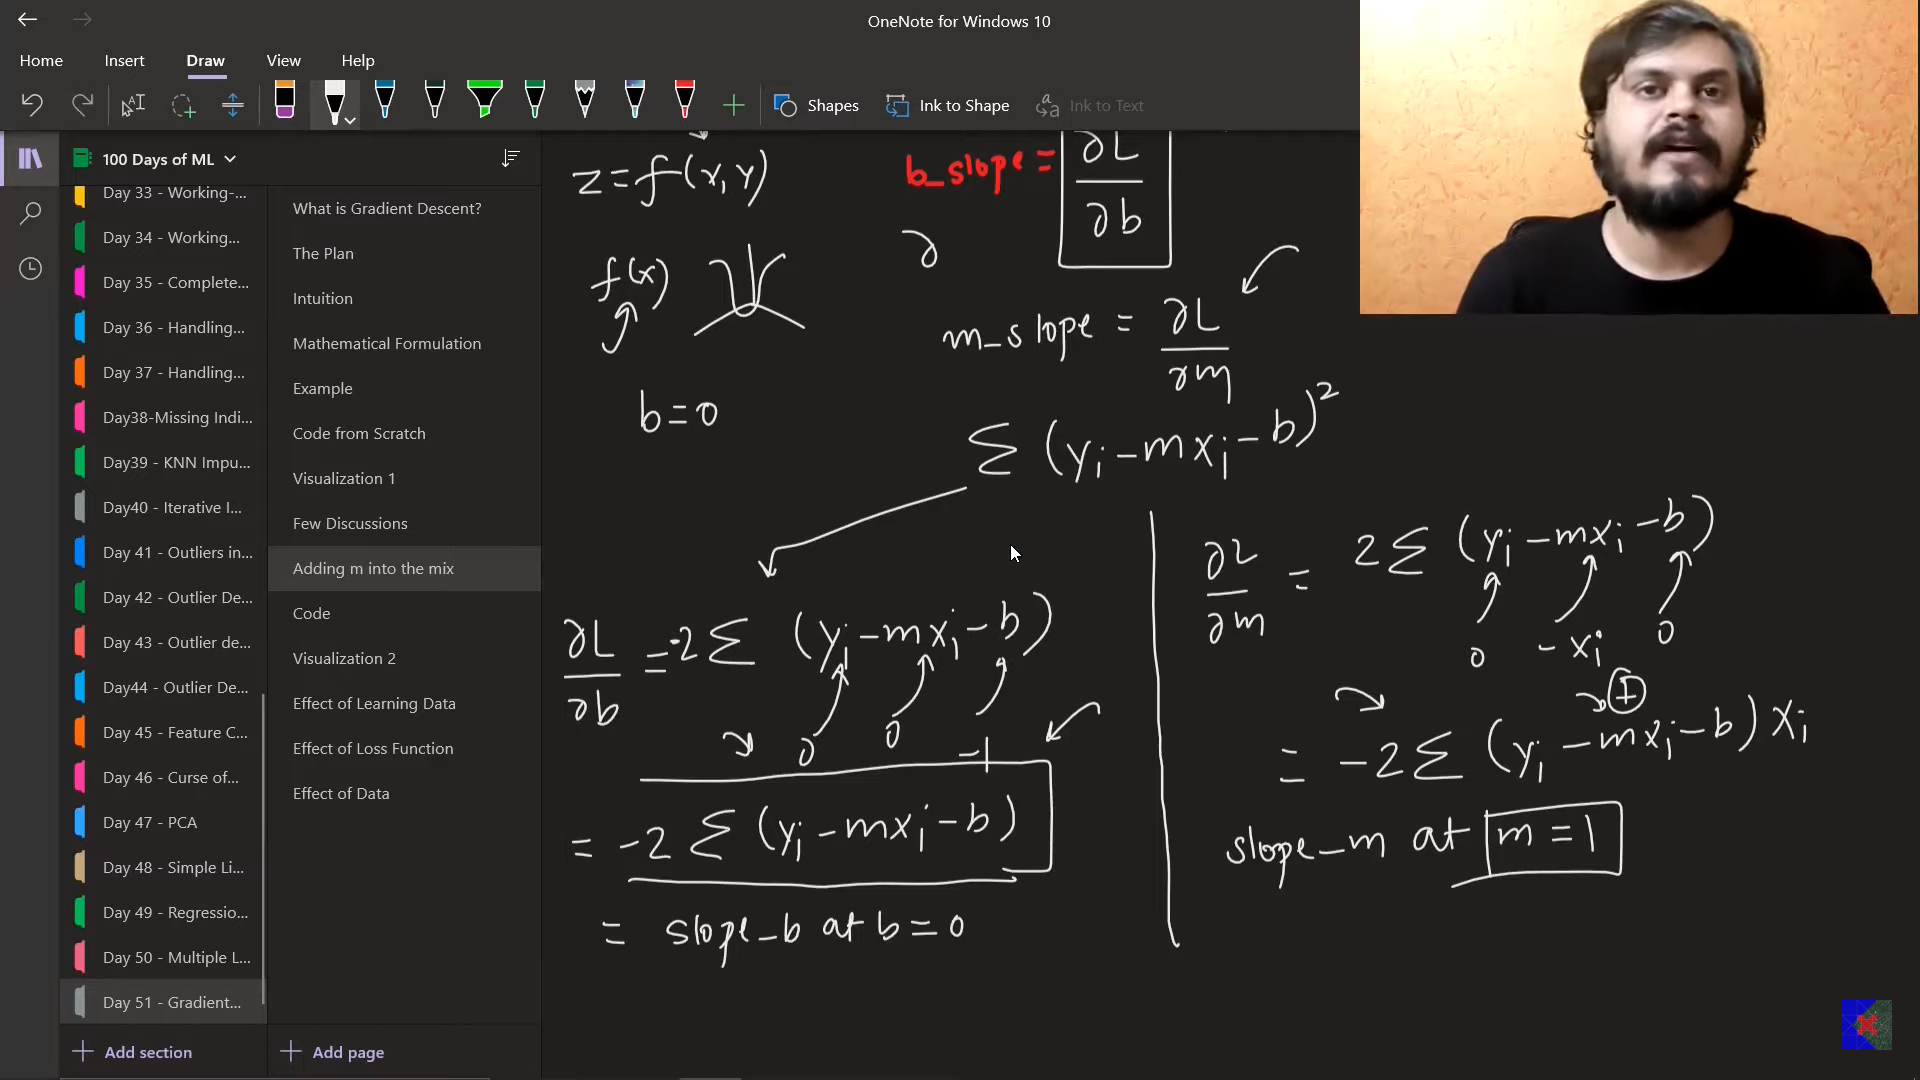 OneNote for Windows 10
Home Insert Draw View Help
Shapes Ink to Shape Ink to Text
100 Days of ML
Day 33 - Working-...
Day 34 - Working...
Day 35 - Complete...
Day 36 - Handling...
Day 37 - Handling...
Day38-Missing Indi...
Day39 - KNN Impu...
Day40 - Iterative I...
Day 41 - Outliers in...
Day 42 - Outlier De...
Day 43 - Outlier de...
Day44 - Outlier De...
Day 45 - Feature C...
Day 46 - Curse of...
Day 47 - PCA
Day 48 - Simple Li...
Day 49 - Regressio...
Day 50 - Multiple L...
Day 51 - Gradient...
Add section
What is Gradient Descent?
The Plan
Intuition
Mathematical Formulation
Example
Code from Scratch
Visualization 1
Few Discussions
Adding m into the mix
Code
Visualization 2
Effect of Learning Data
Effect of Loss Function
Effect of Data
Add page
z = f(x, y)
f(x)
b = 0
b_slope = ∂L/∂b
∂
m_slope = ∂L/∂m
Σ (yi - mxi - b)²
∂L/∂b = -2 Σ (yi - mxi - b)
0 0 -1
= -2 Σ (yi - mxi - b)
= slope_b at b = 0
∂L/∂m = 2 Σ (yi - mxi - b)
0 - xi 0
= -2 Σ (yi - mxi - b) xi
slope_m at m = 1